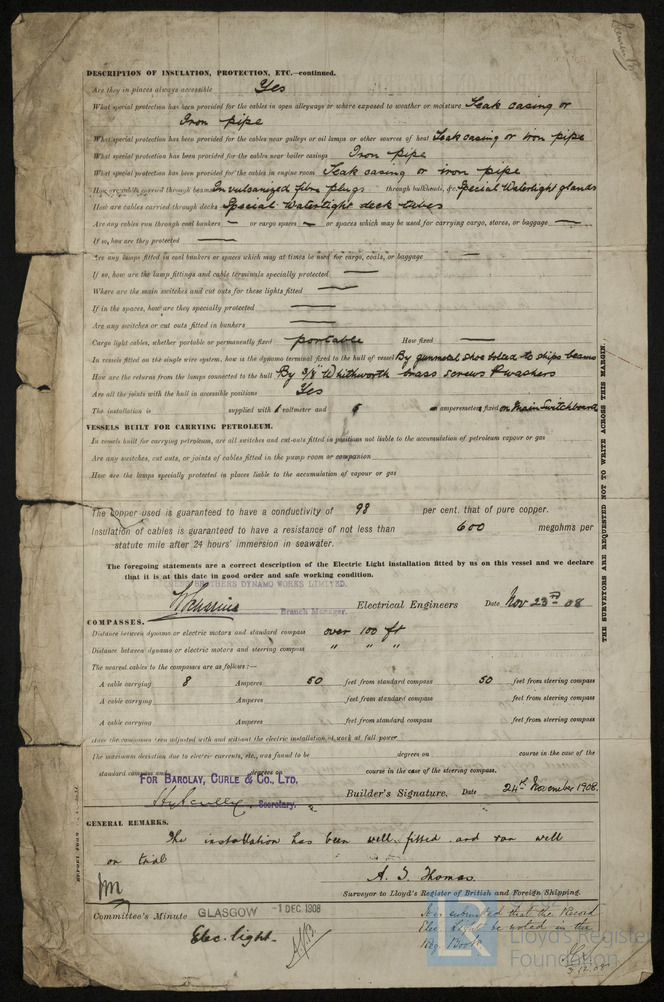 DESCRIPTION OF INSULATION, PROTECTION, ETC.—continued.
Are they in places always accessible Yes
What special protection has been provided for the cables in open alleyways or where exposed to weather or moisture Teak casing or
Iron pipe
What special protection has been provided for the cables near galleys or oil lamps or other sources of heat Teak casing or iron pipe
What special protection has been provided for the cables near boiler casings Iron pipe
What special protection has been provided for the cables in engine room Teak casing or iron pipe
How are cables carried through beams In vulcanized fibre plugs through bulkheads, &c. Special Watertight glands
How are cables carried through decks Special Watertight deck tubes
Are any cables run through coal bunkers — or cargo spaces — or spaces which may be used for carrying cargo, stores, or baggage —
If so, how are they protected —
Are any lamps fitted in coal bunkers or spaces which may at times be used for cargo, coals, or baggage —
If so, how are the lamp fittings and cable terminals specially protected —
Where are the main switches and cut outs for these lights fitted —
If in the spaces, how are they specially protected —
Are any switches or cut outs fitted in bunkers —
Cargo light cables, whether portable or permanently fixed portable How fixed —
In vessels fitted on the single wire system, how is the dynamo terminal fixed to the hull of vessel By gunmetal shoe bolted to ships beams
How are the returns from the lamps connected to the hull By 3/8" Whitworth brass screws & washers
Are all the joints with the hull in accessible positions Yes
The installation is supplied with 1 voltmeter and 5 amperemeters fixed on Main Switchboard
VESSELS BUILT FOR CARRYING PETROLEUM.
In vessels built for carrying petroleum, are all switches and cut-outs fitted in positions not liable to the accumulation of petroleum vapour or gas
Are any switches, cut outs, or joints of cables fitted in the pump room or companion
How are the lamps specially protected in places liable to the accumulation of vapour or gas
The copper used is guaranteed to have a conductivity of 98 per cent. that of pure copper.
Insulation of cables is guaranteed to have a resistance of not less than 600 megohms per
statute mile after 24 hours' immersion in seawater.
The foregoing statements are a correct description of the Electric Light installation fitted by us on this vessel and we declare
that it is at this date in good order and safe working condition.
BROTHERS DYNAMO WORKS LIMITED.
Branch Manager. Electrical Engineers Date Nov 23rd 08
COMPASSES.
Distance between dynamo or electric motors and standard compass over 100 ft
Distance between dynamo or electric motors and steering compass " " "
The nearest cables to the compasses are as follows:—
A cable carrying 8 Amperes 50 feet from standard compass 50 feet from steering compass
A cable carrying Amperes feet from standard compass feet from steering compass
A cable carrying Amperes feet from standard compass feet from steering compass
Have the compasses been adjusted with and without the electric installation at work at full power
The maximum deviation due to electric currents, etc., was found to be degrees on course in the case of the
standard compass and degrees on course in the case of the steering compass.
FOR BARCLAY, CURLE & CO., LTD.
Secretary. Builder's Signature. Date 24th November 1908.
GENERAL REMARKS.
The installation has been well fitted and ran well
on trial
A. J. Thomas
Surveyor to Lloyd's Register of British and Foreign Shipping.
Committee's Minute GLASGOW -1 DEC. 1908
Elec. light.
It is submitted that the Record
Elec. Light be noted in the
Reg. Book
3.12.08
THE SURVEYORS ARE REQUESTED NOT TO WRITE ACROSS THIS MARGIN.
Lloyd's Register
Foundation